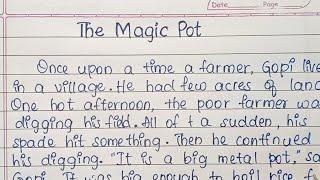 Date Page
The Magic Pot
Once upon a time a farmer, Gopi live
in a village. He had few acres of land
One hot afternoon, the poor farmer was
digging his field. All of t a sudden, his
spade hit something. Then he continued
his digging. "It is a big metal pot," sa
Gopi. It was big enough to boil rice f